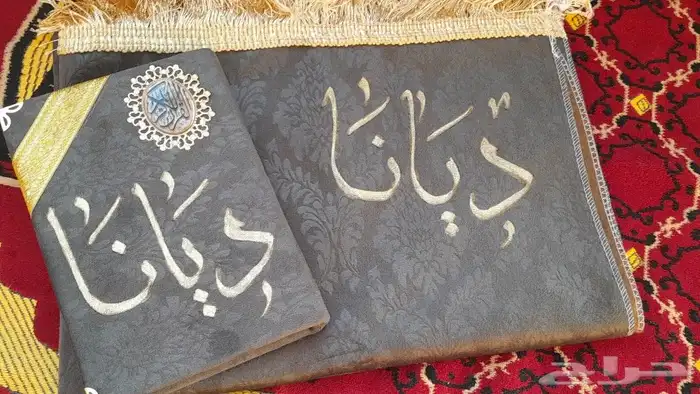 ديانا
ديانا
حراج